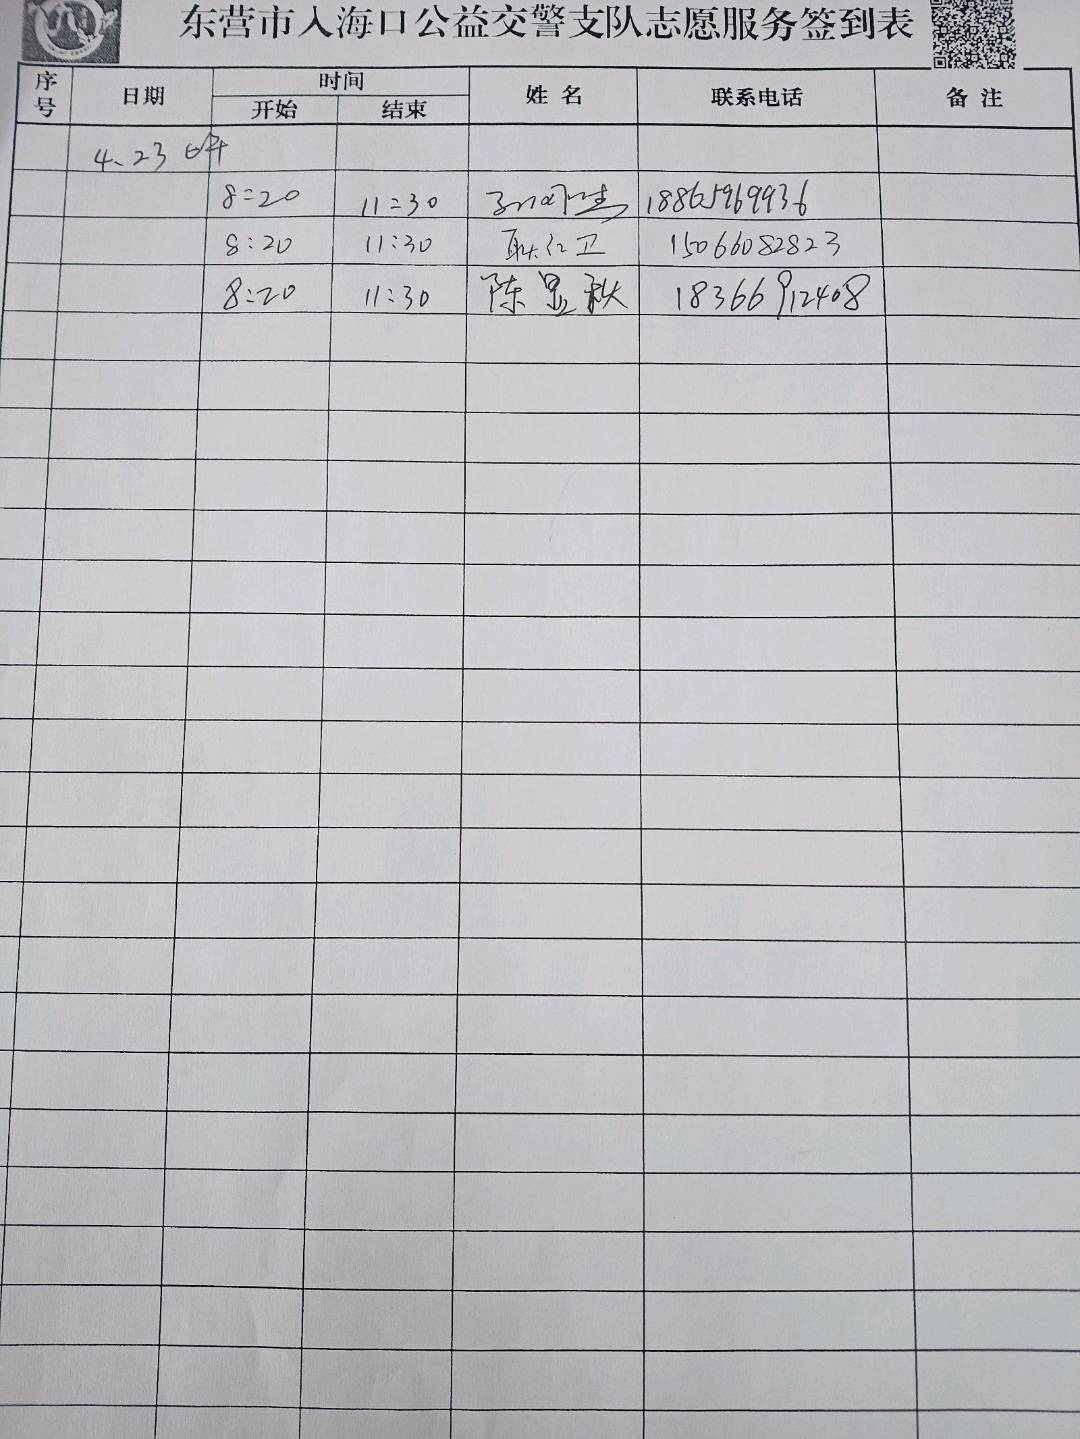 东营市入海口公益交警支队志愿服务签到表
序号 日期 时间 姓名 联系电话 备注
开始 结束
4、23
8:20 11:30 18865969936
8:20 11:30 耿红卫 15066082823
8:20 11:30 陈显秋 18366912408